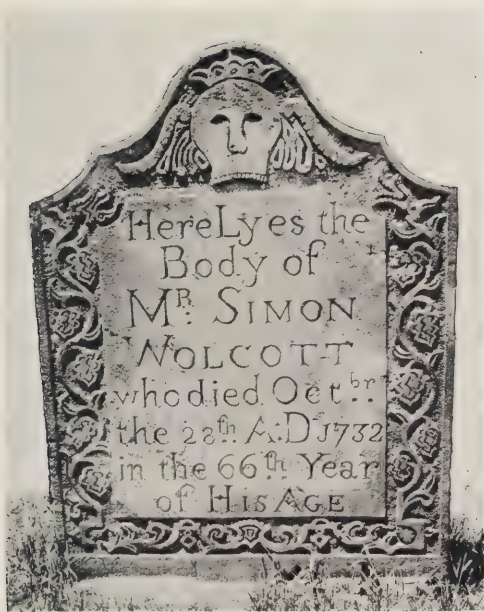 Here Lyes the
Body of
Mr. SIMON
WOLCOTT
who died Octbr.
the 28th A:D 1732
in the 66th Year
of HIS AGE